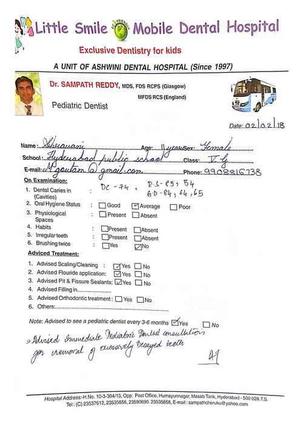 Little Smile Mobile Dental Hospital
Exclusive Dentistry for kids
A UNIT OF ASHWINI DENTAL HOSPITAL (Since 1997)
Dr. SAMPATH REDDY, MDS, FDS RCPS (Glasgow)
MFDS RCS (England)
Pediatric Dentist
Date: 02/02/18
Name: Age: Female
School: Hyderabad public school Class: V
Email: @gmail.com Phone: 9908816738
On Examination:
1. Dental Caries in (Cavities) DC-74, 54
64, 65
2. Oral Hygiene Status : Good Average Poor
3. Physiological Spaces : Present Absent
4. Habits : Present Absent
5. Irregular teeth : Present Absent
6. Brushing twice : Yes No
Advised Treatment:
1. Advised Scaling/Cleaning : Yes No
2. Advised Flouride application: Yes No
3. Advised Pit & Fissure Sealants: Yes No
4. Advised Filling in
5. Advised Orthodontic treatment : Yes No
6. Others:
Note: Advised to see a pediatric dentist every 3-6 months Yes No
Advised Immediate Pediatric Dental consultation
for removal of excessively decayed teeth
Hospital Address: H.No. 10-3-304/13, Opp: Post Office, Humayunnagar, Masab Tank, Hyderabad - 500 028.T.S.